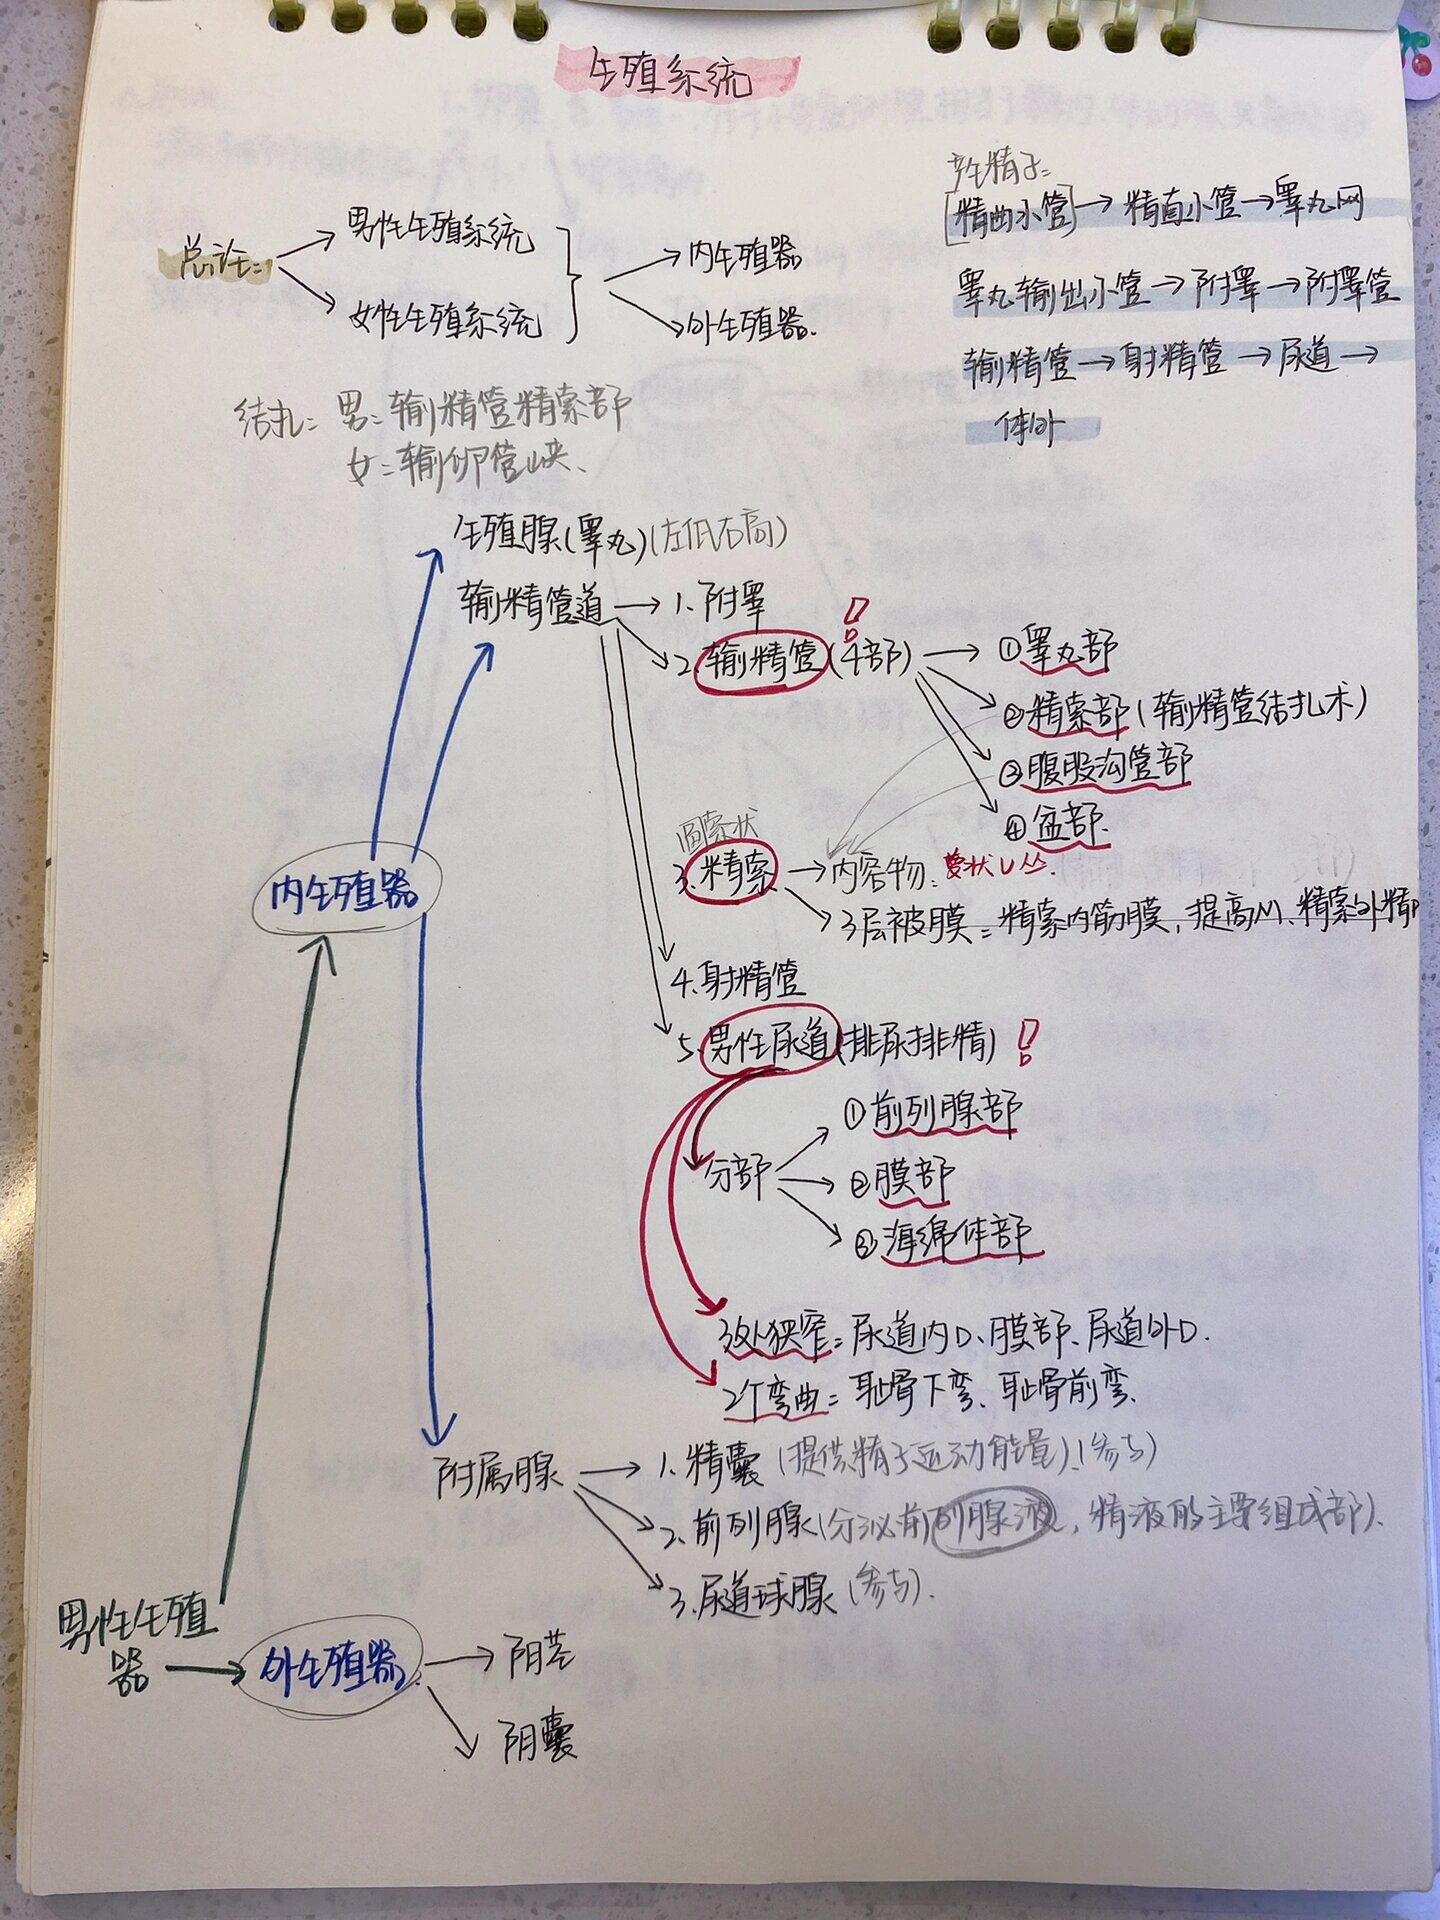 生殖系统
产生精子:
[精曲小管]→精直小管→睾丸网
睾丸输出小管→附睾→附睾管
输精管→射精管→尿道→
体外
总论:
男性生殖系统
女性生殖系统
内生殖器
外生殖器.
结扎: 男:输精管精索部
女:输卵管峡、
生殖腺(睾丸)(左低右高)
输精管道→1.附睾
2.输精管(4部)
①睾丸部
②精索部(输精管结扎术)
③腹股沟管部
④盆部.
圆索状
3.精索→内容物:蔓状V丛.
3层被膜:精索内筋膜,提睾M、精索外
4.射精管
5.男性尿道(排尿排精)
分部
①前列腺部
②膜部
③海绵体部
3处狭窄:尿道内口、膜部、尿道外口.
2个弯曲:耻骨下弯、耻骨前弯.
内生殖器
附属腺
1.精囊(提供精子运动能量)、(参与)
2.前列腺(分泌前列腺液,精液的主要组成部).
3.尿道球腺(参与).
男性生殖
器
外生殖器
阴茎
阴囊